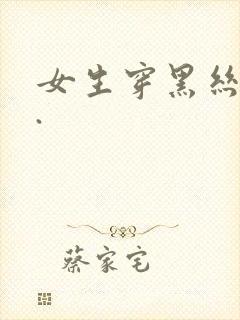 女生穿黑丝
.
蔡家宅